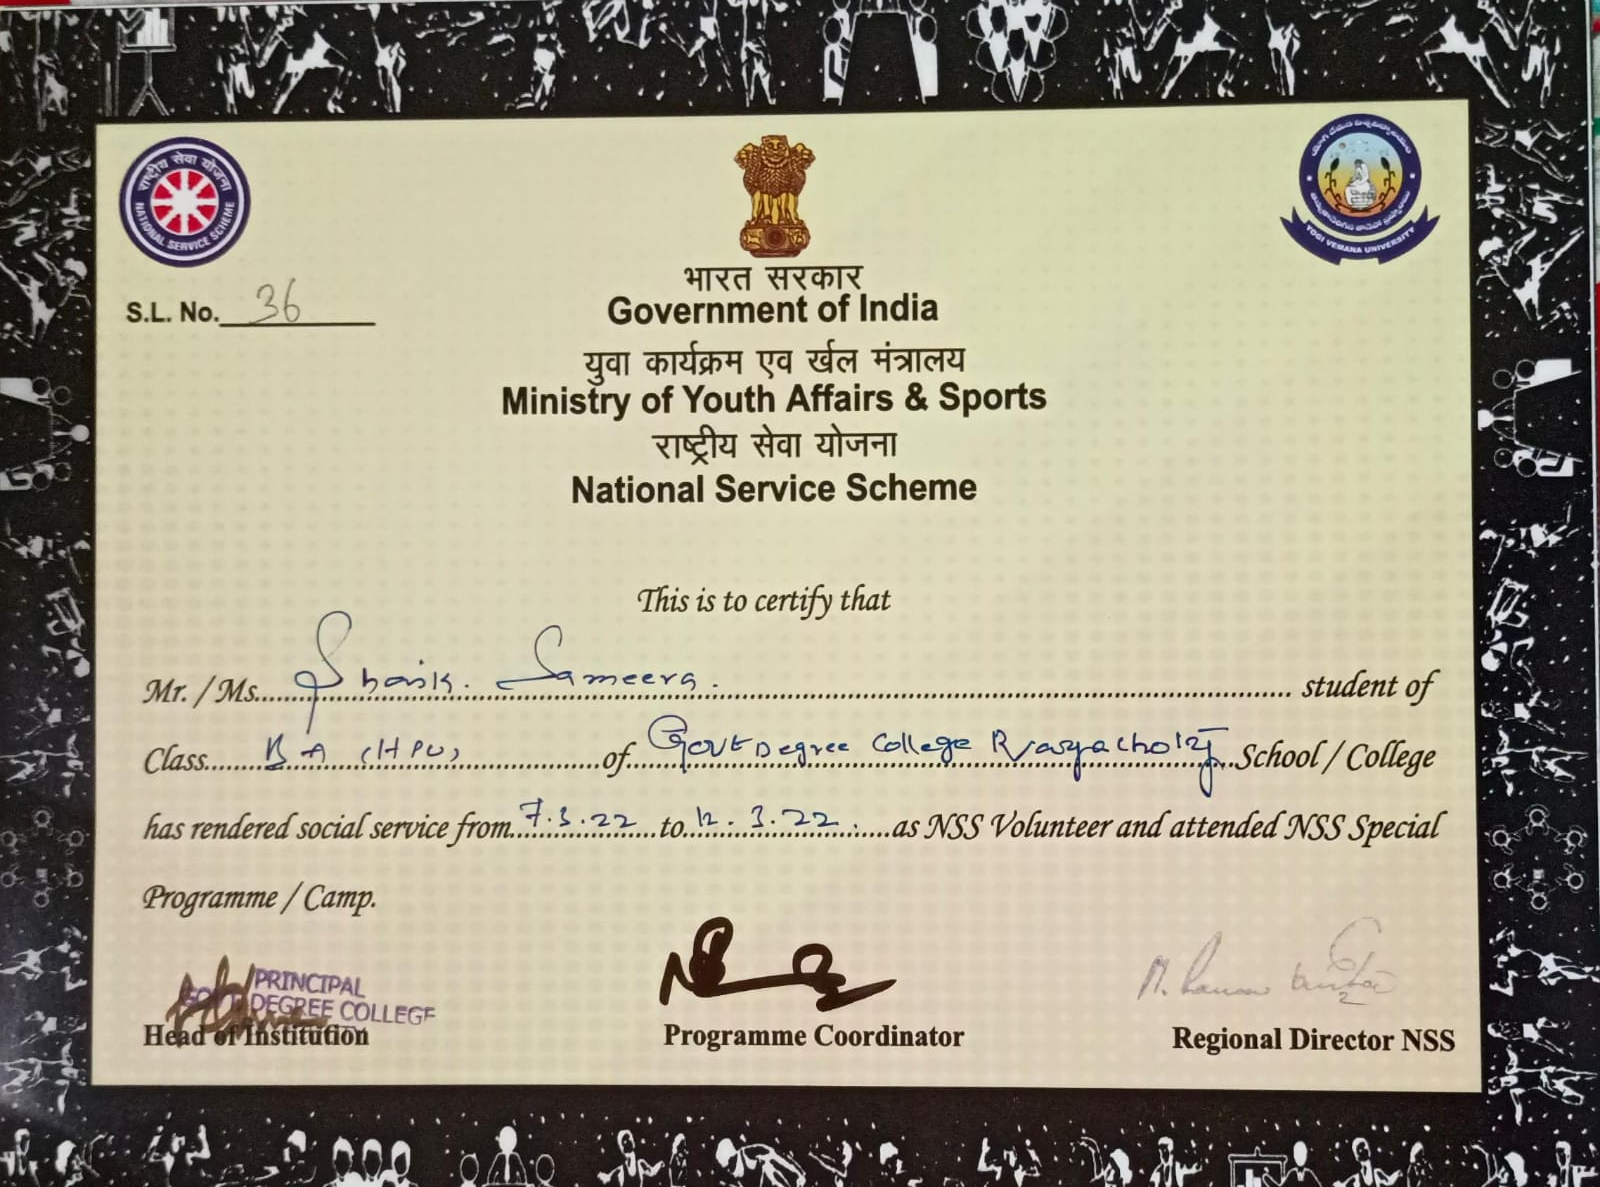 राष्ट्रीय सेवा योजना
NATIONAL SERVICE SCHEME
YOGI VEMANA UNIVERSITY
S.L. No. 36
भारत सरकार
Government of India
युवा कार्यक्रम एव र्खल मंत्रालय
Ministry of Youth Affairs & Sports
राष्ट्रीय सेवा योजना
National Service Scheme
This is to certify that
Mr. / Ms. Shaik. Sameera. student of
Class B A (HPU) of Govt Degree College School / College
has rendered social service from 7.3.22 to 12.3.22. as NSS Volunteer and attended NSS Special
Programme / Camp.
PRINCIPAL
GOVT DEGREE COLLEGE
Head of Institution
Programme Coordinator
Regional Director NSS